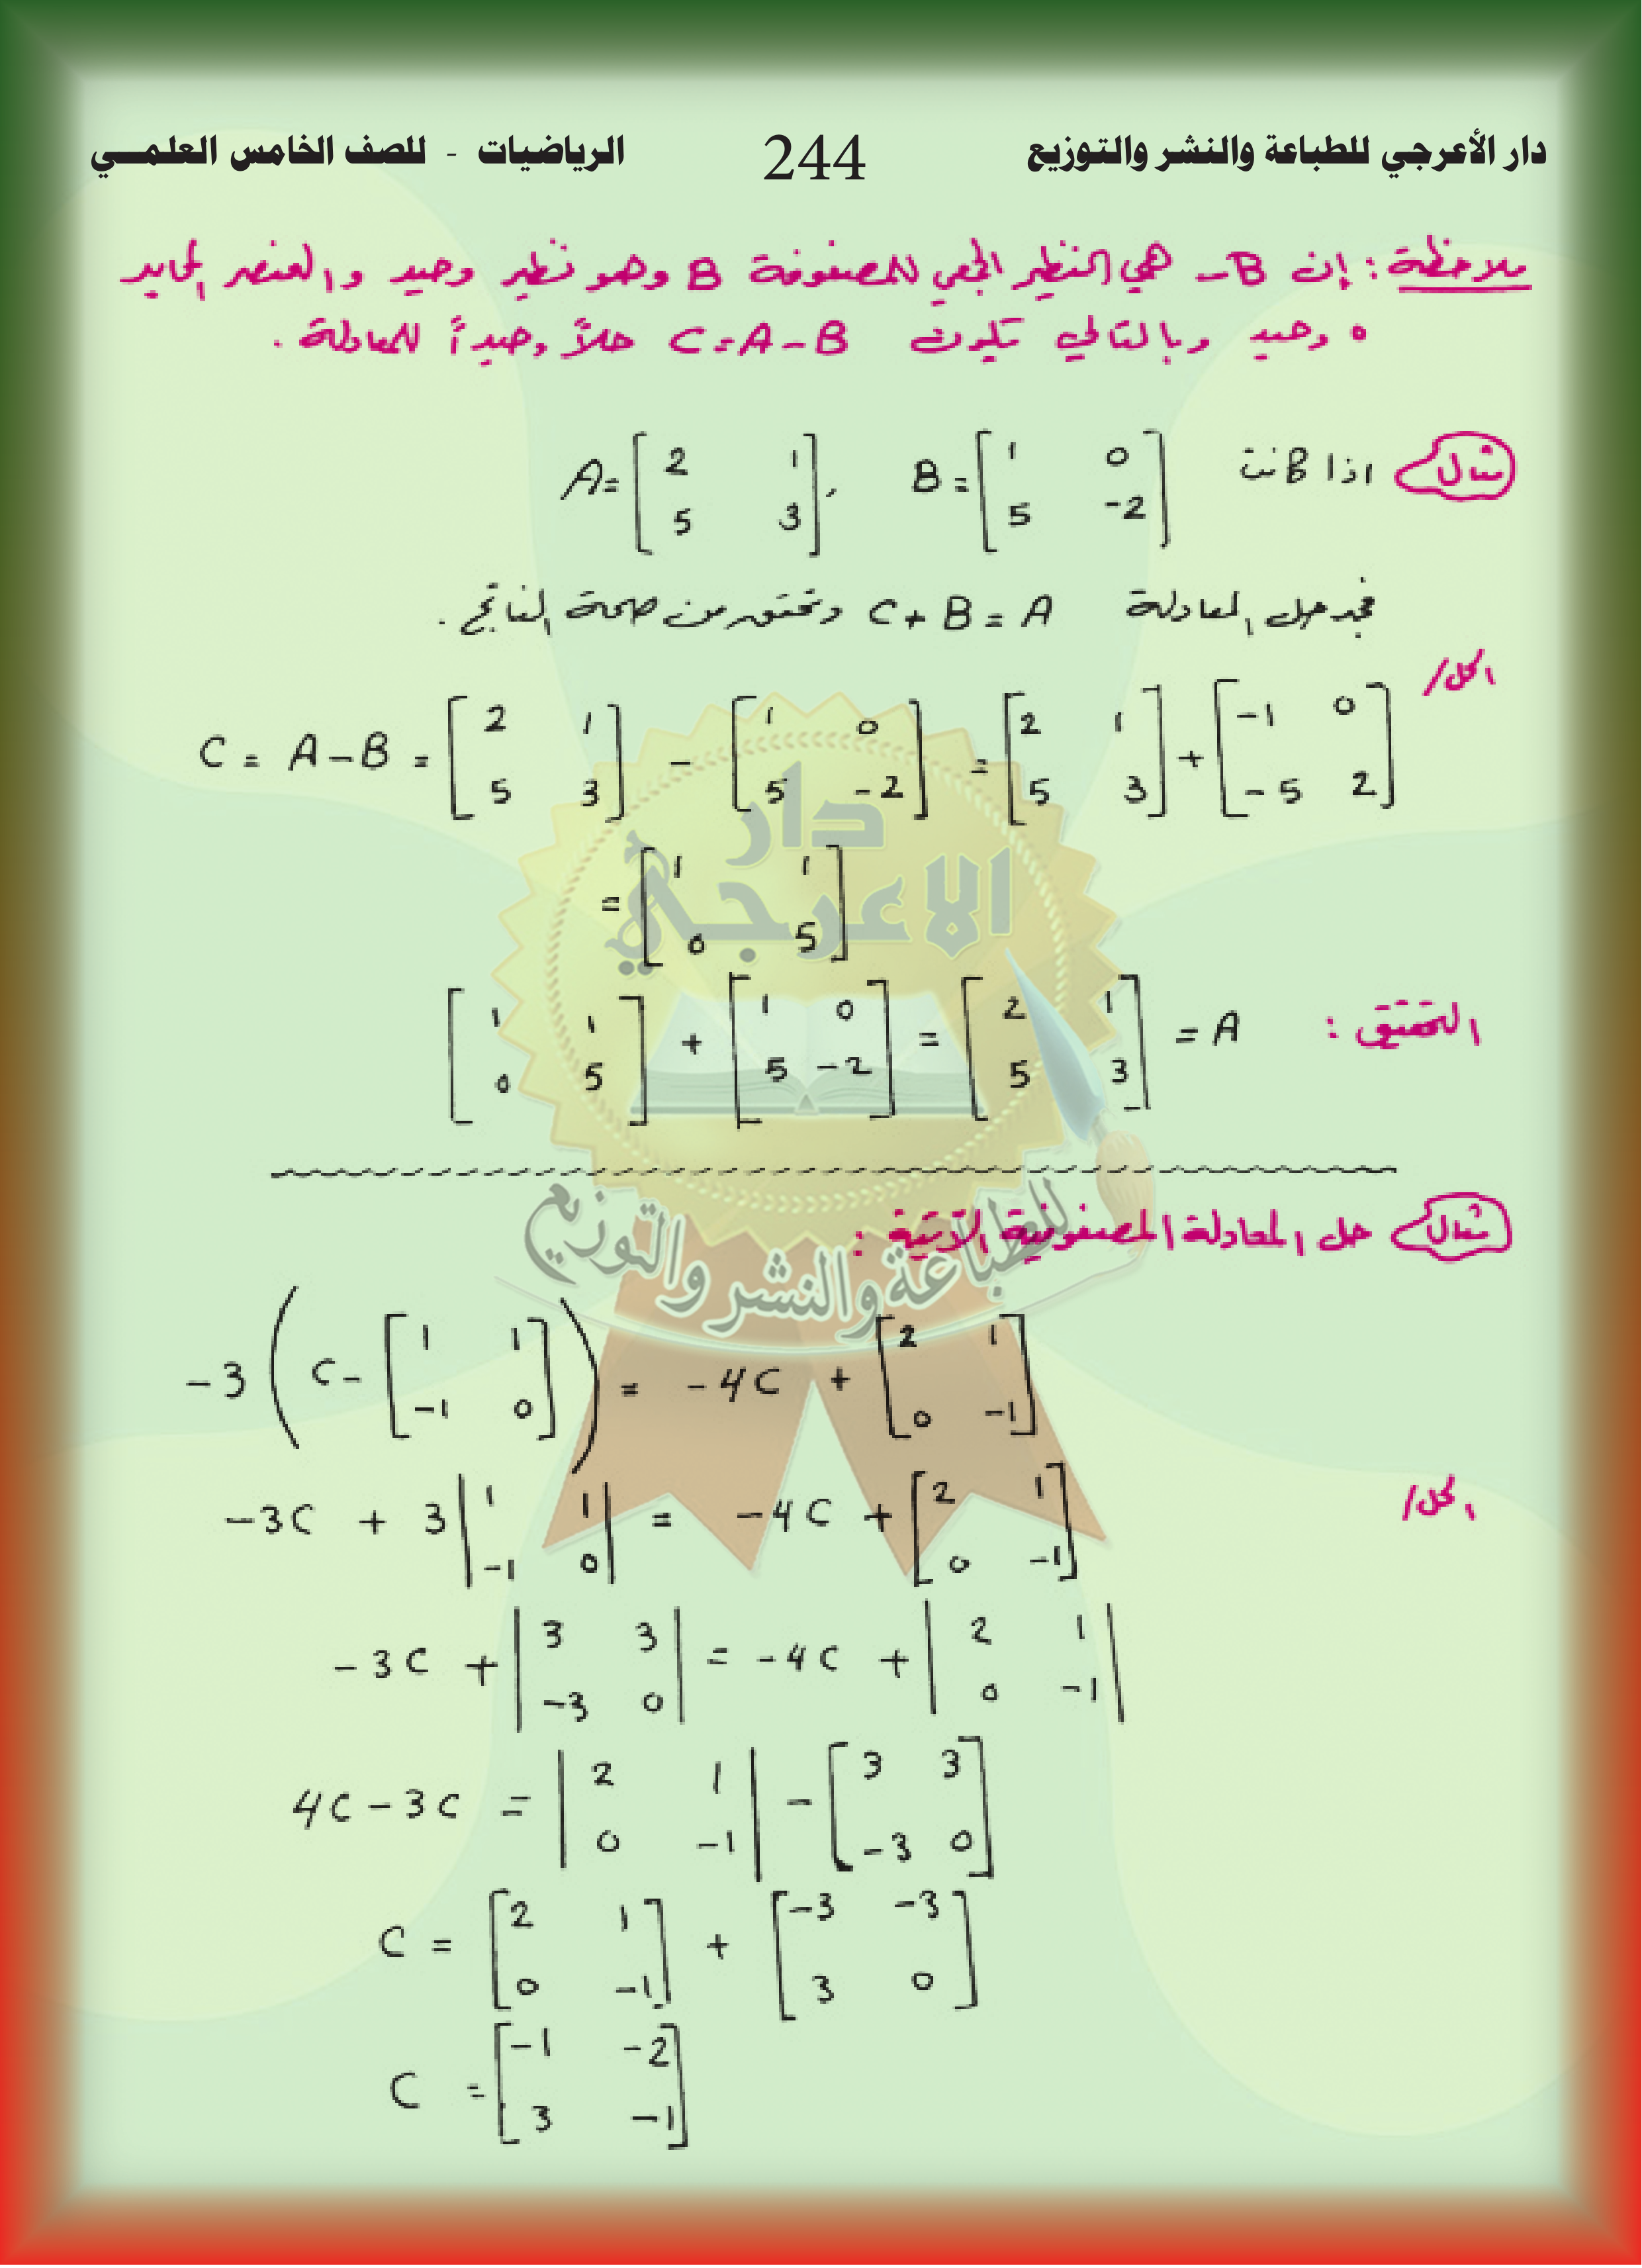 دار الأعرجي للطباعة والنشر والتوزيع 244 الرياضيات - للصف الخامس العلمـــي
ملاحظة : إن B- هي النظير الجمعي للمصفوفة B وهو نظير وحيد والعنصر المحايد
0 وحيد وبالتالي تكون C=A-B حلاً وحيداً للمعادلة .
مثال اذا كانت A=[2 1; 5 3] , B=[1 0; 5 -2]
فجد حل المعادلة C+B=A وتحقق من صحة الناتج .
الحل/
C = A-B = [2 1; 5 3] - [1 0; 5 -2] = [2 1; 5 3] + [-1 0; -5 2]
= [1 1; 0 5]
التحقيق : [1 1; 0 5] + [1 0; 5 -2] = [2 1; 5 3] = A
دار
الاعرجي
للطباعة والنشر والتوزيع
مثال حل المعادلة المصفوفية الآتية :
-3 (C - [1 1; -1 0]) = -4C + [2 1; 0 -1]
الحل/
-3C + 3|1 1; -1 0| = -4C + [2 1; 0 -1]
-3C + |3 3; -3 0| = -4C + |2 1; 0 -1|
4C-3C = |2 1; 0 -1| - [3 3; -3 0]
C = [2 1; 0 -1] + [-3 -3; 3 0]
C = [-1 -2; 3 -1]